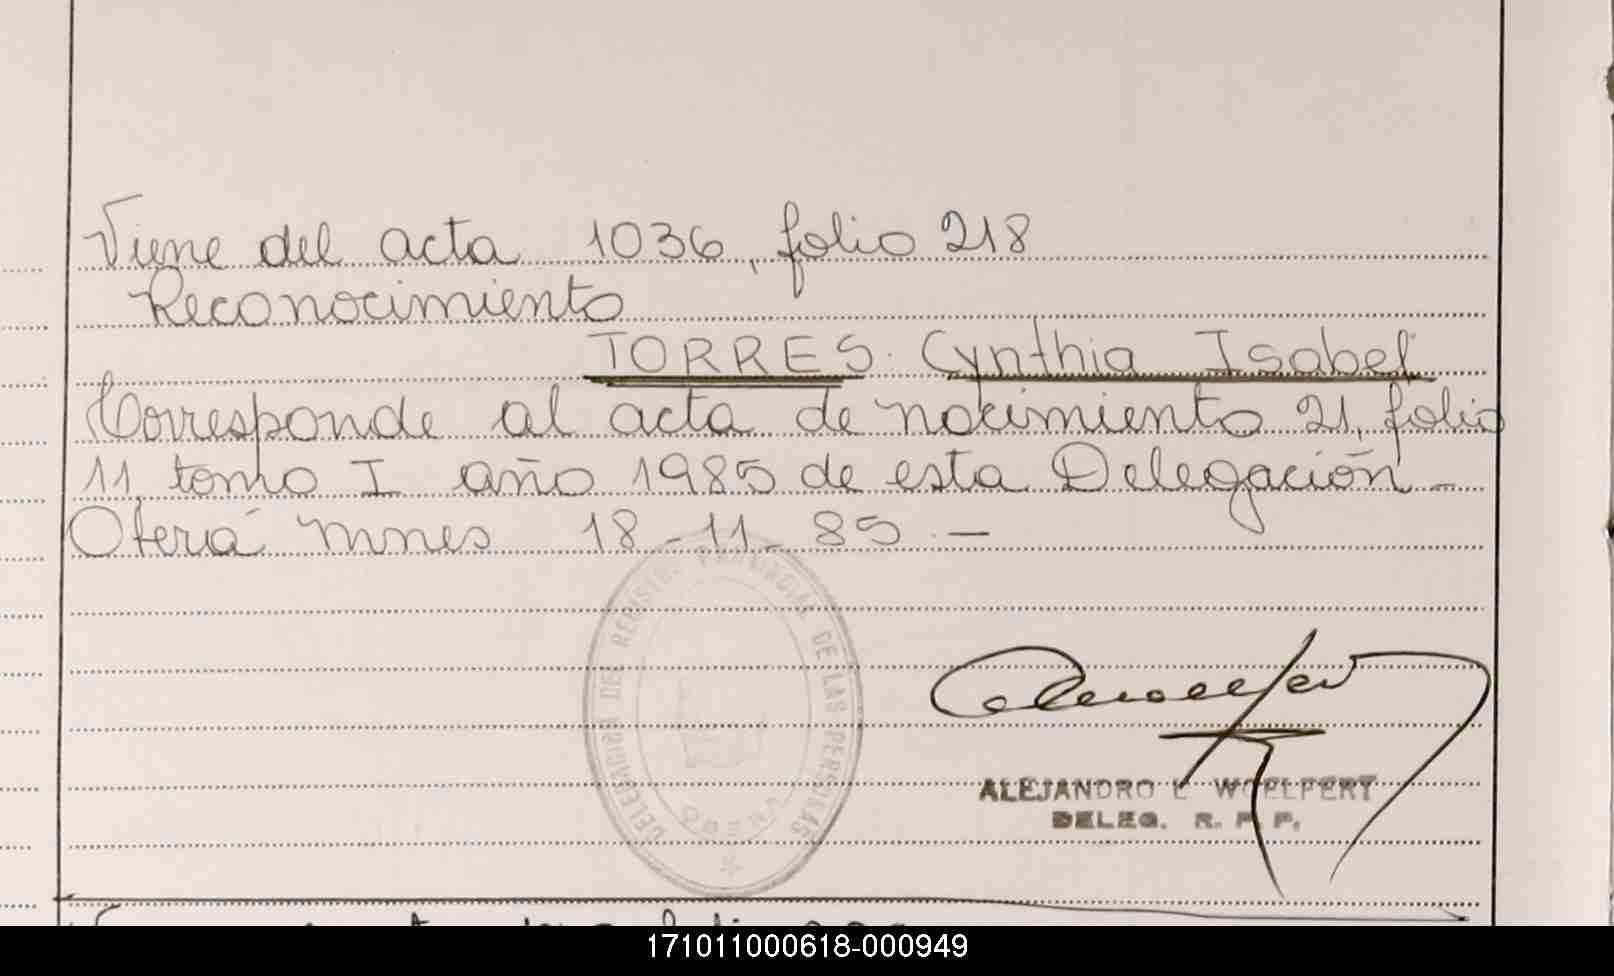 Viene del acta 1036, folio 218
Reconocimiento
TORRES Cynthia Isabel
Corresponde al acta de nacimiento 21, folio
11, tomo I año 1985 de esta Delegación -
Oberá Mnes 18-11-85.-
DELEGACION DEL REGISTRO PROVINCIAL DE LAS PERSONAS
OBERA
ALEJANDRO L WOELFERT
DELEG. R. P. P.
171011000618-000949